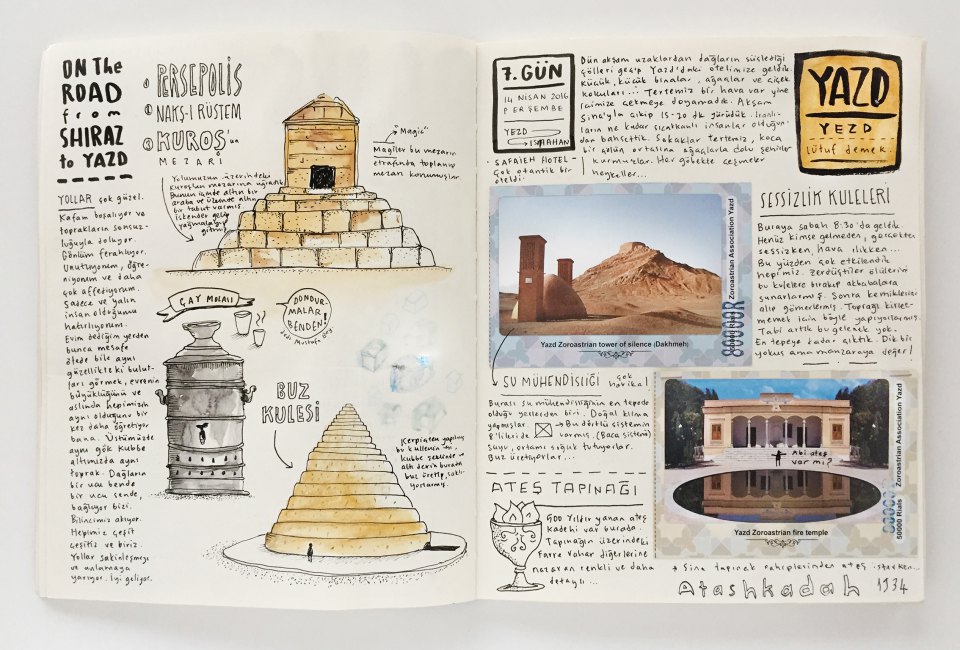 ON THE
ROAD
from
SHIRAZ
to YAZD
① PERSEPOLIS
② NAKŞ-I RÜSTEM
③ KUROŞ'un
MEZARI
"Magic"
Magiler bu mezarın
etrafında toplanıp
mezarı korumuşlar.
Yolumuzun üzerindeki
Kuroş'un mezarına uğradık.
Bunun içinde altın bir
araba ve üzerinde altın
bir tabut varmış
İskender gelip
yağmalayıp
gitmiş
YOLLAR çok güzel.
Kafam boşalıyor ve
toprakların sonsuz-
luğuyla doluyor.
Gönlüm ferahlıyor.
Unutuyorum, öğre-
niyorum ve daha
çok affediyorum.
Sadece ve yalın
insan olduğumu
hatırlıyorum.
Evim dediğim yerden
bunca mesafe
ötede bile aynı
güzellikteki bulut-
ları görmek, evrenin
büyüklüğünü ve
aslında hepimizin
aynı olduğunu bir
kez daha öğretiyor
bana. Üstümüzde
aynı gök kubbe
altımızda aynı
toprak. Dağların
bir ucu bende
bir ucu sende,
bağlıyor bizi.
Bilincimiz akıyor.
Hepimiz çeşit
çeşitiz ve biriz.
Yollar sakinleşmeye
ve anlamaya
yarıyor. İyi geliyor.
ÇAY MOLASI
DONDUR-
MALAR
BENDEN!
dedi Mustafa Bey
BUZ
KULESİ
Kerpiçten yapılmış
bu kulenin içi
kubbe şeklinde ve
altı derin burada
buz üretip, sakl-
ıyorlarmış.
7. GÜN
14 NİSAN 2016
PERŞEMBE
YEZD
ISFAHAN
Dün akşam uzaklardan dağların süslediği
çölleri geçip Yazd'daki otelimize geldik
Küçük, küçük binalar, ağaçlar ve çiçek
kokuları... Tertemiz bir hava var yine
içimize çekmeye doyamadık. Akşam
Sina'yla çıkıp 15-20 dk yürüdük. İranlı-
ların ne kadar sıcakkanlı insanlar olduğun-
dan bahsettik. Sokaklar tertemiz, koca
bir çölün ortasına ağaçlarla dolu şehirler
kurmuşlar. Her göbekte çeşmeler
heykeller...
· SAFAIEH HOTEL -
Çok otantik bir
oteldi
YAZD
YEZD
lütuf demek.
Zoroastrian Association Yazd
50000R
Yazd Zoroastrian tower of silence (Dakhmeh)
SESSİZLİK KULELERİ
Buraya sabah 8:30'da geldik
Henüz kimse gelmeden, gerçekten
sessizken hava ılıkken...
Bu yüzden çok etkilendik
hepimiz. Zerdüştiler ölülerini
bu kulelere bırakıp akbabalara
sunarlarmış. Sonra kemiklerini
alıp gömerlermiş. Toprağı kirlet-
memek için böyle yapıyorlarmış.
Tabi artık bu gelenek yok.
En tepeye kadar çıktık. Dik bir
yokuş ama manzaraya değer!
SU MÜHENDİSLİĞİ çok
harika!
Burası su mühendisliğinin en tepede
olduğu yerlerden biri. Doğal klima
yapmışlar. → Bu dörtlü sistemin
8'lileri de varmış. (Baca sistemi)
Suyu, ortamı soğuk tutuyorlar.
Buz üretiyorlar...
ATEŞ TAPINAĞI
500 Yıldır yanan ateş
kadehi var burada.
Tapınağın üzerindeki
Farre Vohar diğerlerine
nazaran renkli ve daha
detaylı...
Abi ateş
var mı?
Zoroastrian Association Yazd
50000 Rials
Yazd Zoroastrian fire temple
→ Sina tapınak rahiplerinden ateş isterken...
Atashkadah 1934